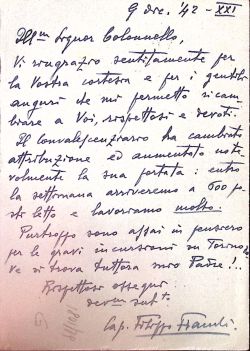 9 dic. '42 - XXI
Ill^mo Signor Colonnello,
Vi ringrazio sentitamente per
la Vostra cortesia e per i gentili
auguri che mi permetto ricam-
biare a Voi, rispettosi e devoti.
Il Convalescenziario ha cambiato
attribuzione ed aumentato note-
volmente la sua portata: entro
la settimana arriveremo a 600 po-
sti letto e lavoriamo molto.
Purtroppo sono assai in pensiero
per le gravi incursioni su Torino do-
ve si trova tuttora mio Padre!..
Rispettosi ossequi.
dev^mo
Cap. Filippo